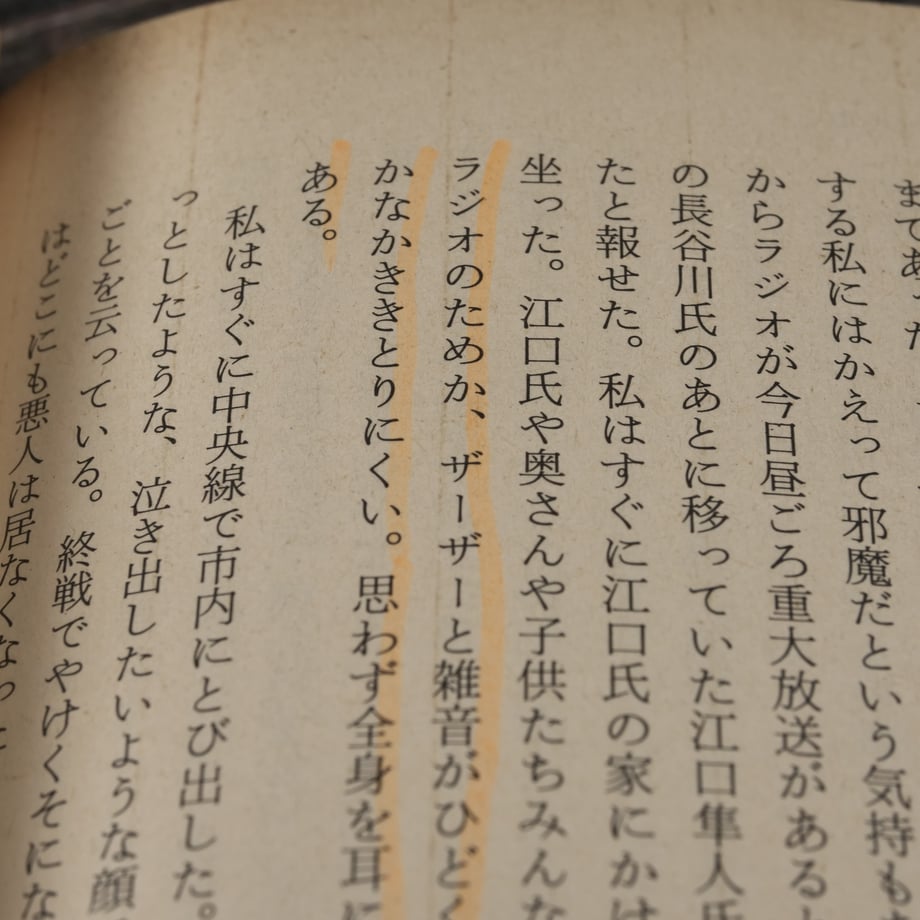 まであ
する私にはかえって邪魔だという気持も
からラジオが今日昼ごろ重大放送がある
の長谷川氏のあとに移っていた江口隼人氏
たと報せた。私はすぐに江口氏の家にか
坐った。江口氏や奥さんや子供たちみんな
ラジオのためか、ザーザーと雑音がひどく
かなかききとりにくい。思わず全身を耳に
ある。
私はすぐに中央線で市内にとび出した。
っとしたような、泣き出したいような顔
ごとを云っている。終戦でやけくそにな
はどこにも悪人は居なくなっ